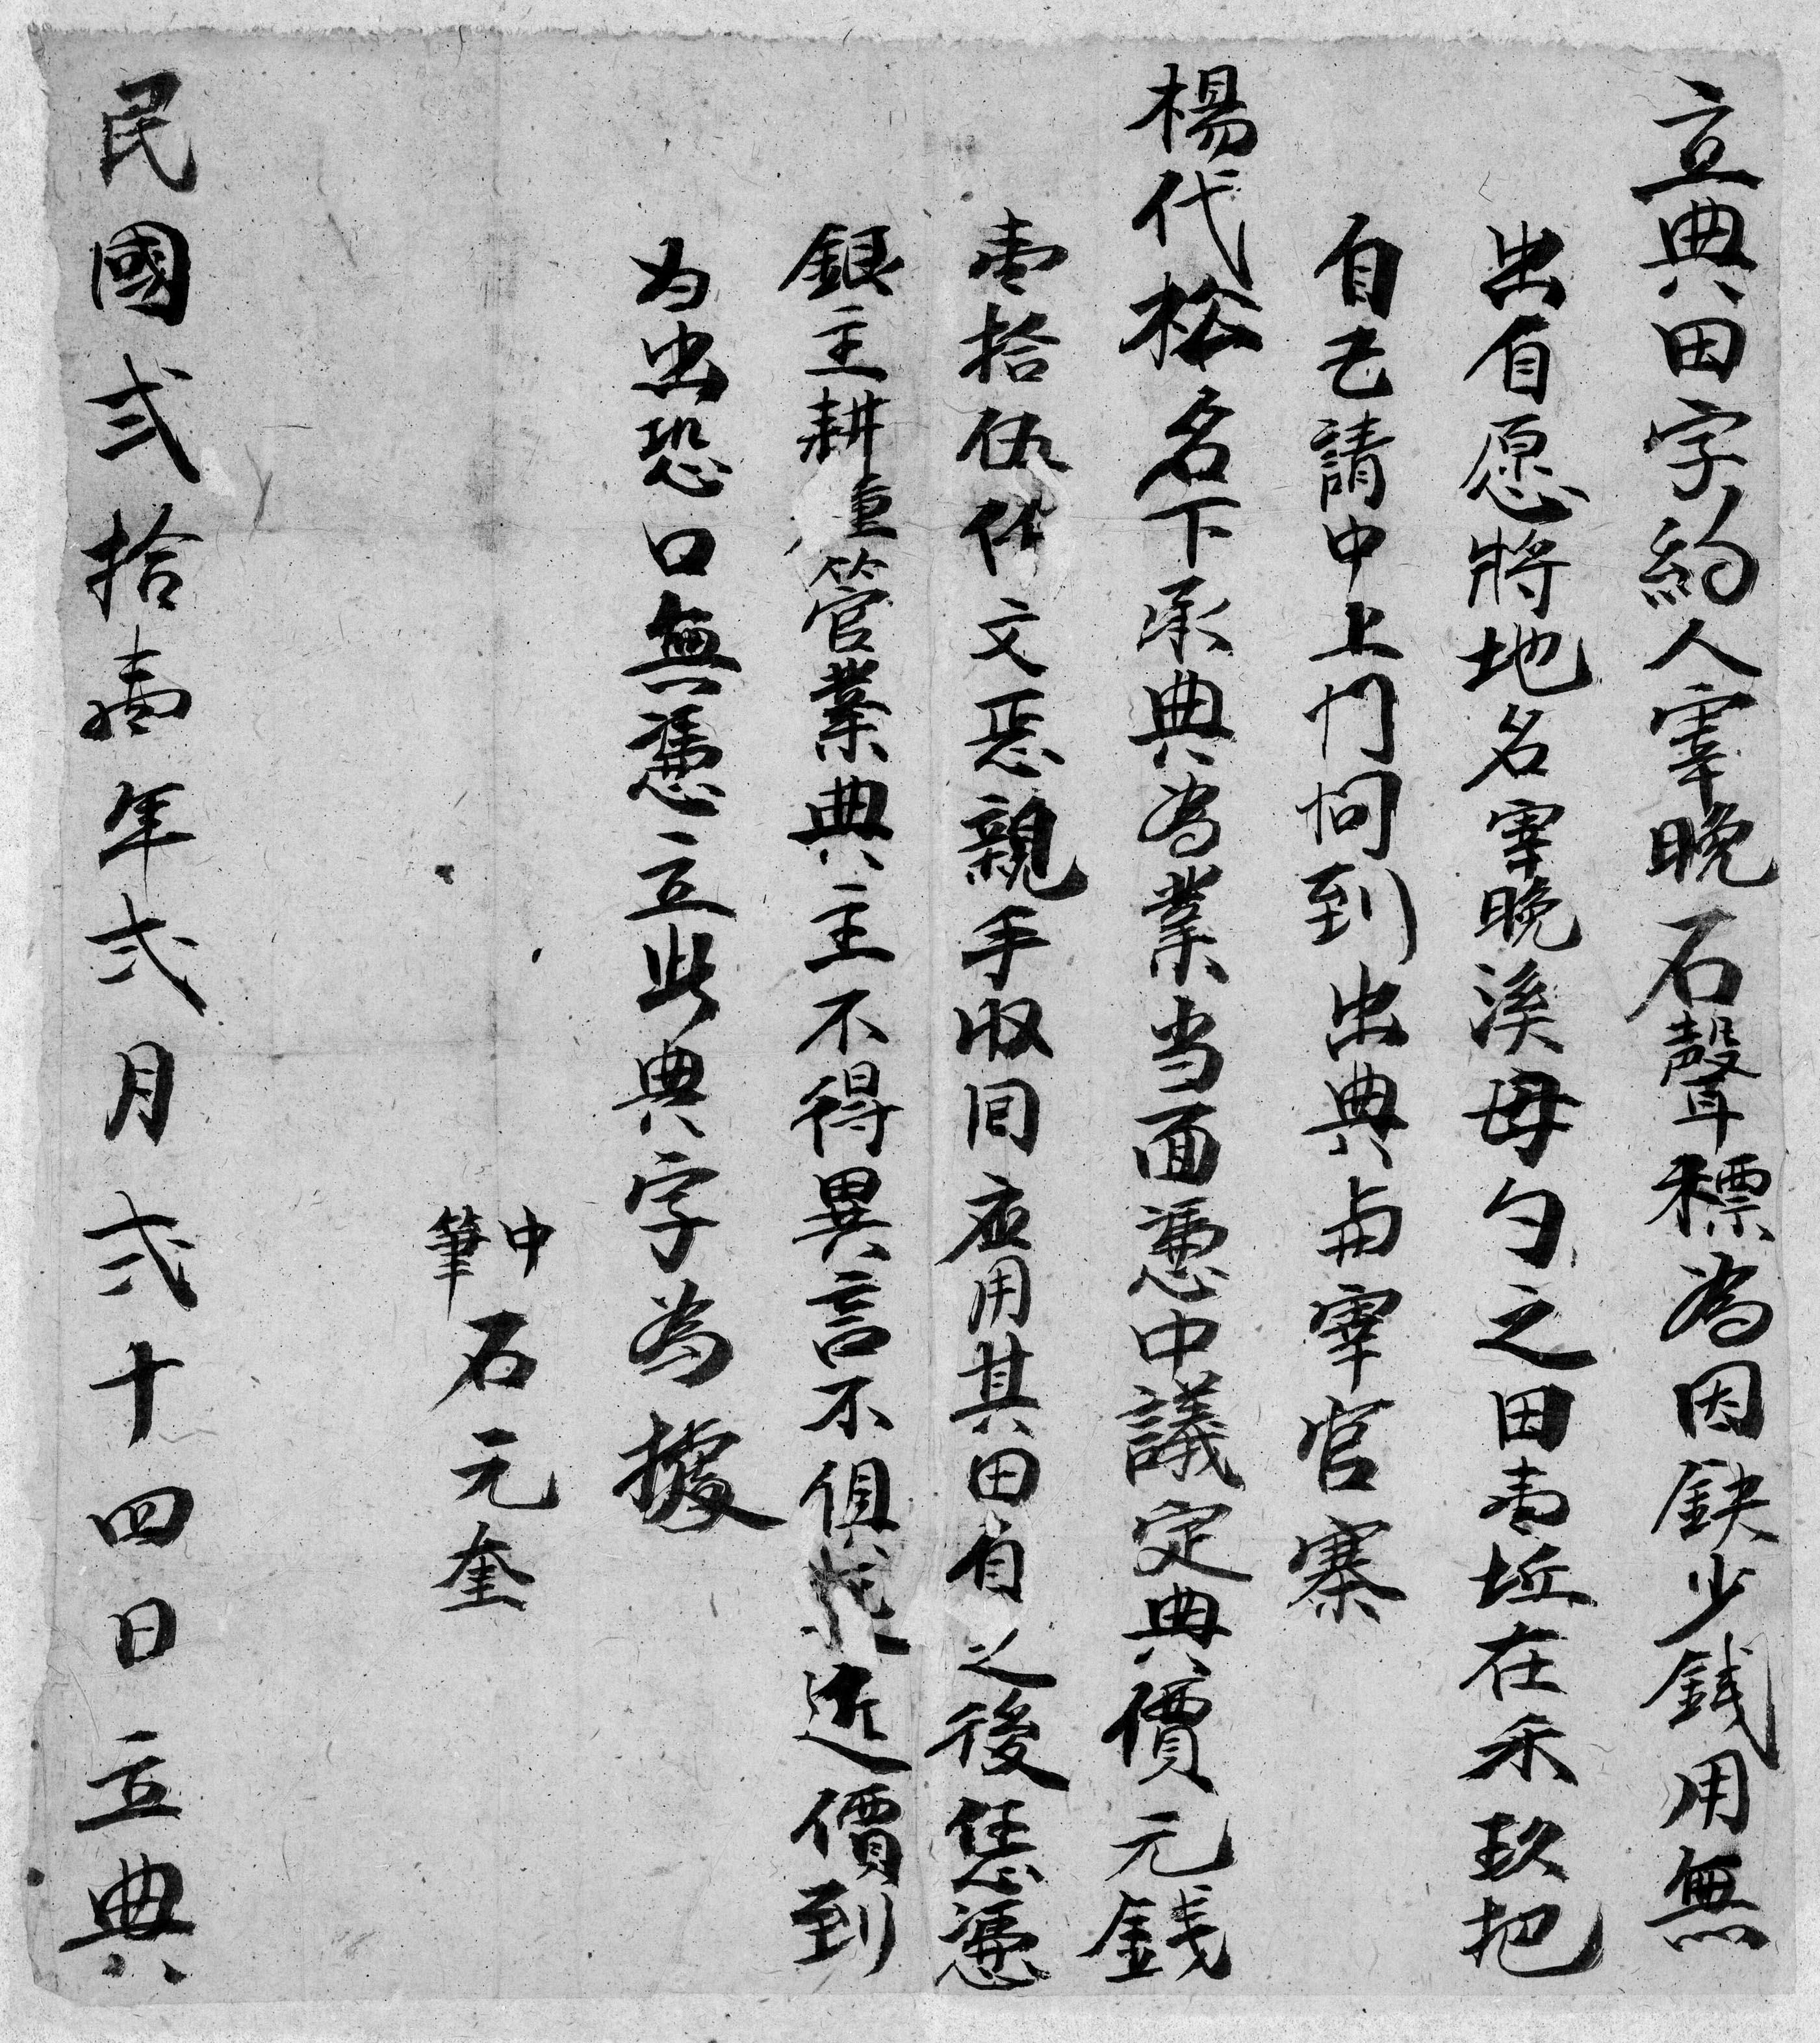 立典田字約人宰晚石聲標為因缺少錢用無
出自愿將地名宰晚溪毋勺之田壹坵在禾玖把
自己請中上门问到出典与宰官寨
楊代松名下承典為業当面憑中議定典價元錢
壹拾伍仟文悉親手收回应用其田自之後恁憑
銀主耕種管業典主不得異言不俱遠近價到
为出恐口無憑立此典字為據
中
筆 石元奎
民國弍拾壹年弍月弍十四日立典